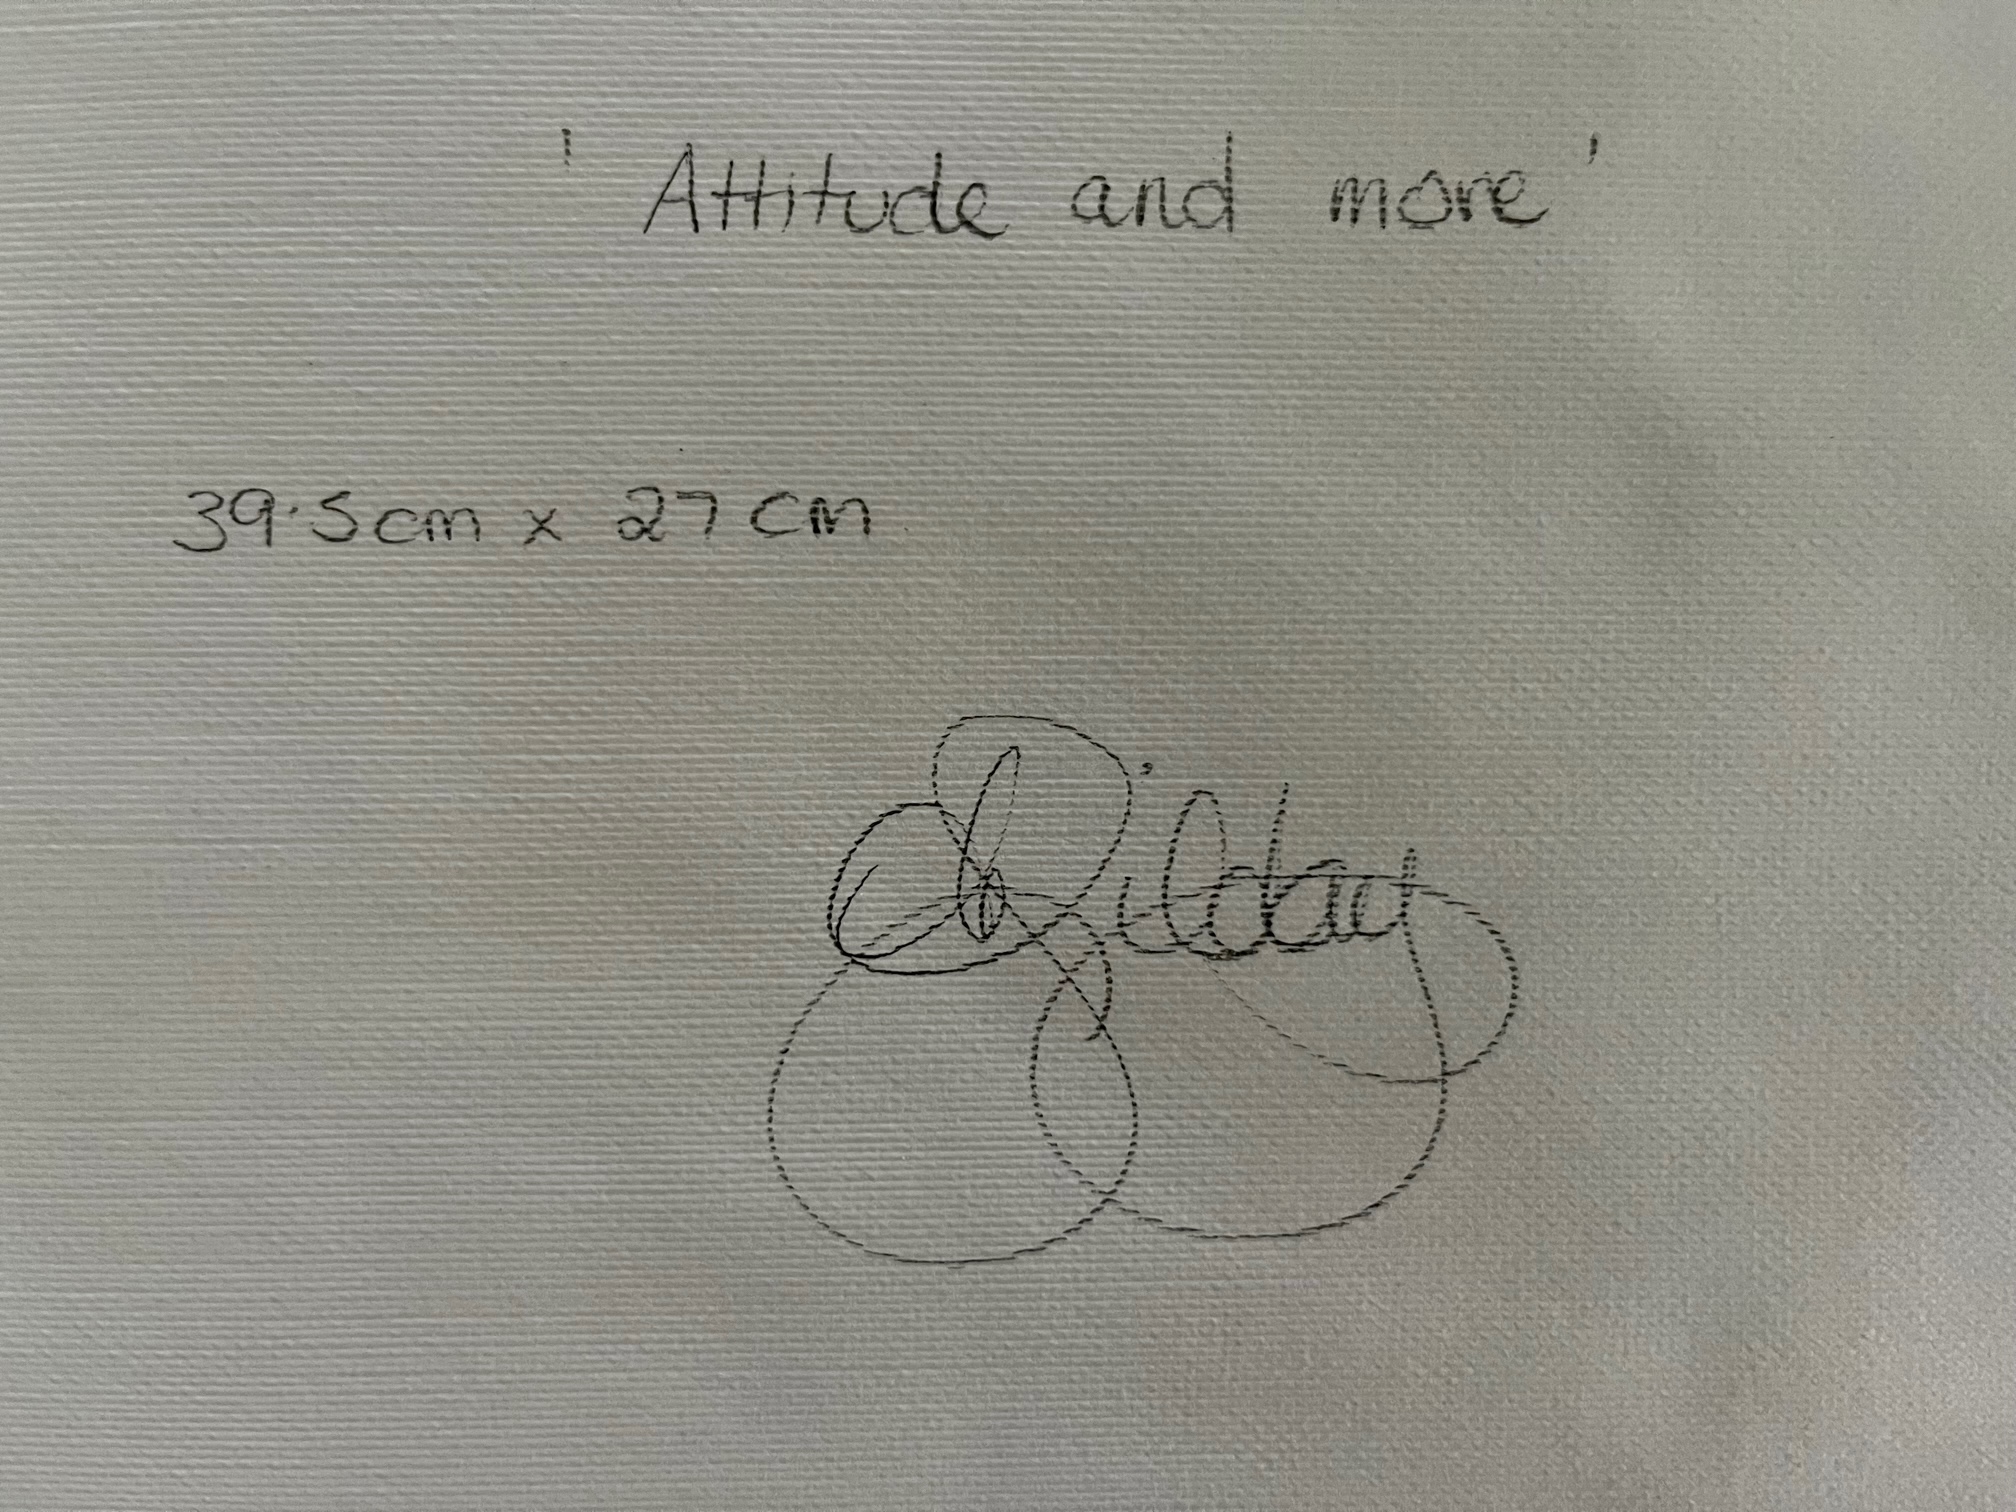 'Attitude and more'
39.5cm x 27cm